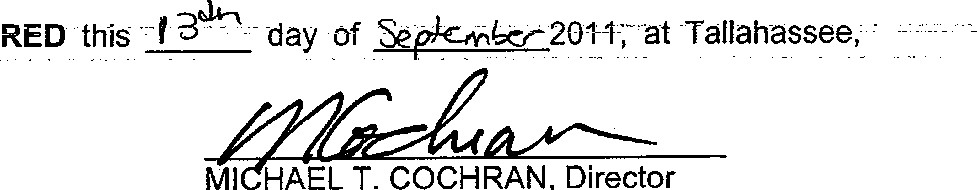 RED this 13th day of September 2011, at Tallahassee,
MCochran
MICHAEL T. COCHRAN, Director